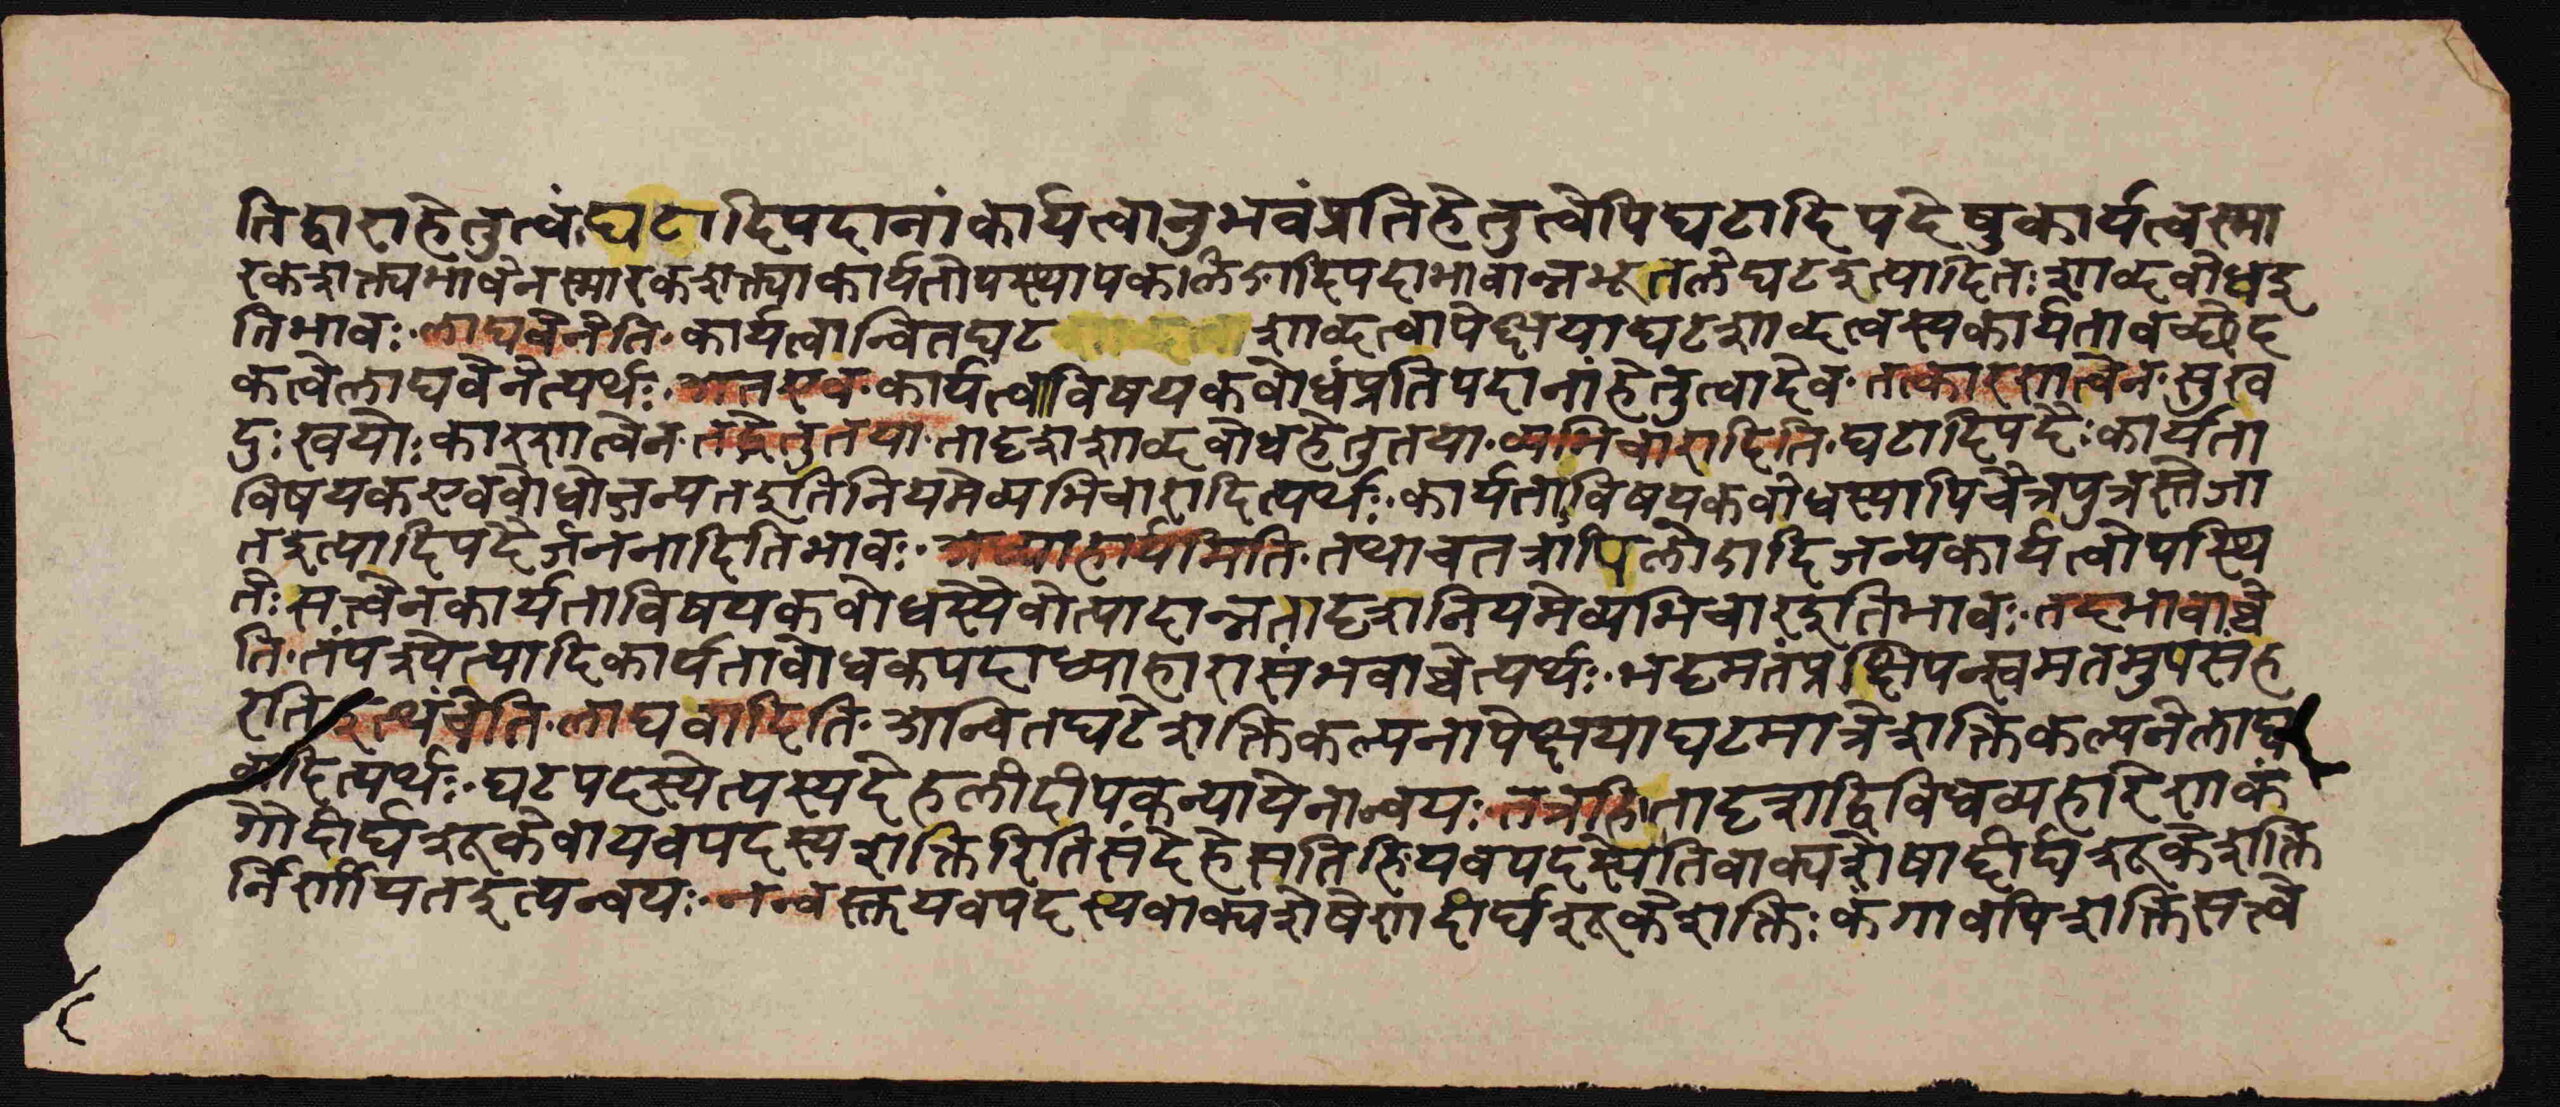 तिद्वाराहेतुत्वं।घटादिपदानांकार्यत्वानुभवंप्रतिहेतुत्वेपिघटादिपदेषुकार्यत्वस्मा
रकशक्त्यभावेनस्मारकशक्त्याकार्यतोपस्थापकलिङादिपदाभावान्नभूतलेघटइत्यादितःशाब्दबोधइ
तिभावः॰लाघवेनेति॰कार्यत्वान्वितघटशाब्दत्वापेक्षयाघटशाब्दत्वस्यकार्यतावच्छेद
कत्वेलाघवेनेत्यर्थः॰अतएव॰कार्यत्वाविषयकबोधंप्रतिपदानांहेतुत्वादेव॰तत्कारणत्वेन॰सुख
दुःखयोःकारणत्वेन॰तद्धेतुतया॰तादृशशाब्दबोधहेतुतया॰व्यभिचारादिति॰घटादिपदैःकार्यता
विषयकएवबोधोजन्यतइतिनियमेव्यभिचारादित्यर्थः॰कार्यताविषयकबोधस्यापिचैत्रपुत्रस्तेजा
तइत्यादिपदैर्जननादितिभावः॰अध्याहार्यमिति॰तथाचतत्रापिलोडादिजन्यकार्यत्वोपस्थि
तेःसत्त्वेनकार्यताविषयकबोधस्यैवोत्पादान्नतादृशनियमेव्यभिचारइतिभावः॰तदभावाच्चे
ति॰तंपश्येत्यादिकार्यताबोधकपदाध्याहारासंभवाच्चेत्यर्थः॰भट्टमतंप्रक्षिपन्स्वमतमुपसंह
रतिइत्थंचेति॰लाघवादिति॰अन्वितघटेशक्तिकल्पनापेक्षयाघटमात्रेशक्तिकल्पनेलाघ
वादित्यर्थः॰घटपदस्येत्यस्यदेहलीदीपकन्यायेनान्वयः॰तत्रहि।तादृशद्विविधव्यहारेणकं
गौदीर्घशूकेवायवपदस्यशक्तिरितिसंदेहेसतिहियवपदस्येतिवाक्यशेषाद्दीर्घशूकेशक्ति
र्निर्णीयतइत्यन्वयः॰नन्वस्तुयवपदस्यवाक्यशेषेणदीर्घशूकेशक्तिःकंगावपिशक्तिसत्त्वे